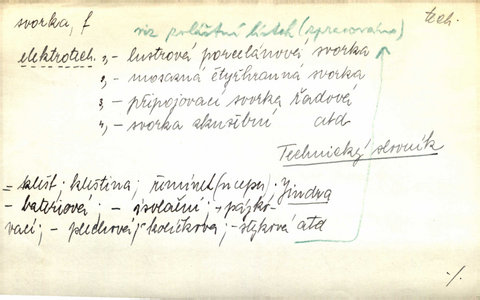 svorka, f
viz zvláštní lístek (zpracováno)
tech.
elektrotech. 1, - lustrová porcelánová svorka
2, - mosazná čtyřhranná svorka
3, - připojovací svorka řadová
4, - svorka zkušební atd
Technický slovník
= klešť; kleština; řemínek (nceps); Jindra
- bateriová; - isolační; - pájko-
vací; - plechová; - kolíčková; - styková atd
./.